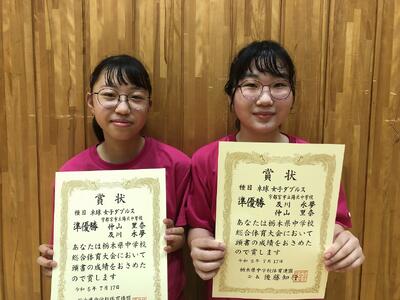 賞状
種目 卓球 女子ダブルス
宇都宮市立陽北中学校
準優勝 仲山 里奈
及川 永夢
あなたは栃木県中学校
総合体育大会において
頭書の成績をおさめた
ので賞します
令和5年7月17日
賞状
種目 卓球 女子ダブルス
宇都宮市立陽北中学校
準優勝 及川 永夢
仲山 里奈
あなたは栃木県中学校
総合体育大会において
頭書の成績をおさめた
ので賞します
令和5年7月17日
栃木県中学校体育連盟
会長 後藤知